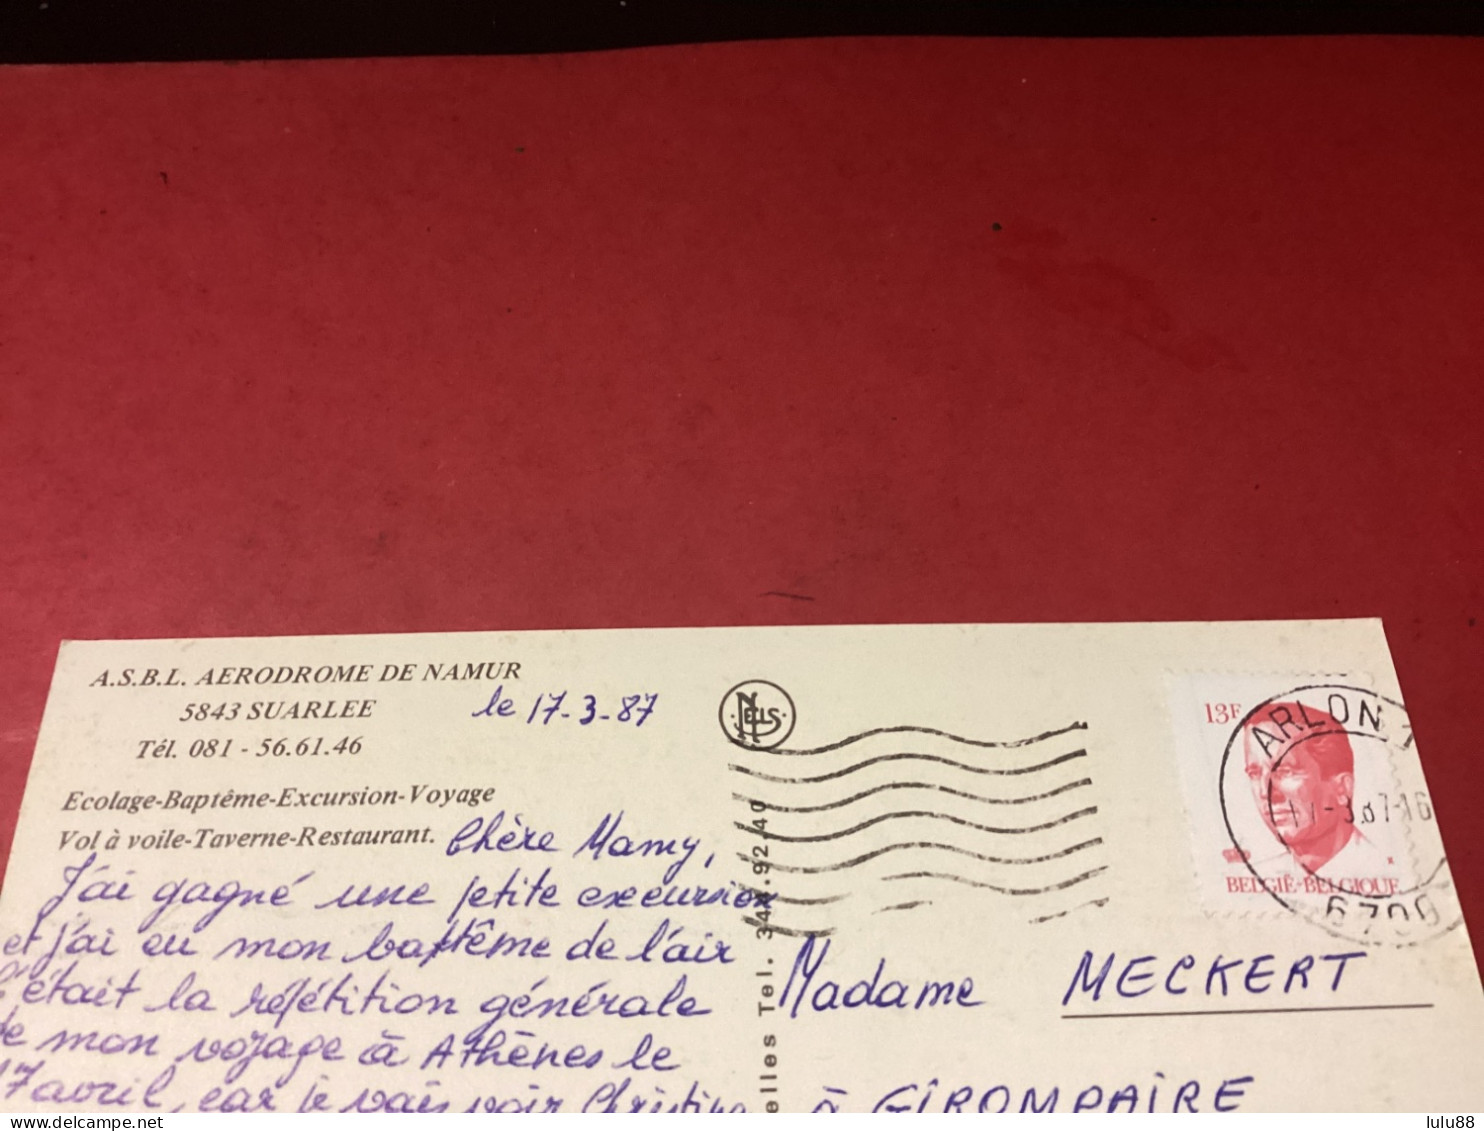 A.S.B.L. AERODROME DE NAMUR
5843 SUARLEE
Tél. 081 - 56.61.46
le 17-3-87
Ecolage-Baptême-Excursion-Voyage
Vol à voile-Taverne-Restaurant.
Chère Mamy,
J'ai gagné une petite excursion
et j'ai eu mon baptême de l'air
C'était la répétition générale
de mon voyage à Athènes le
17 avril, car je vais voir Christine
NELS
elles Tel. 344.92.40
13F
BELGIË-BELGIQUE
ARLON 1
17-3.87-16
6700
Madame MECKERT
à GIROMPAIRE
delcampe.net
lulu88